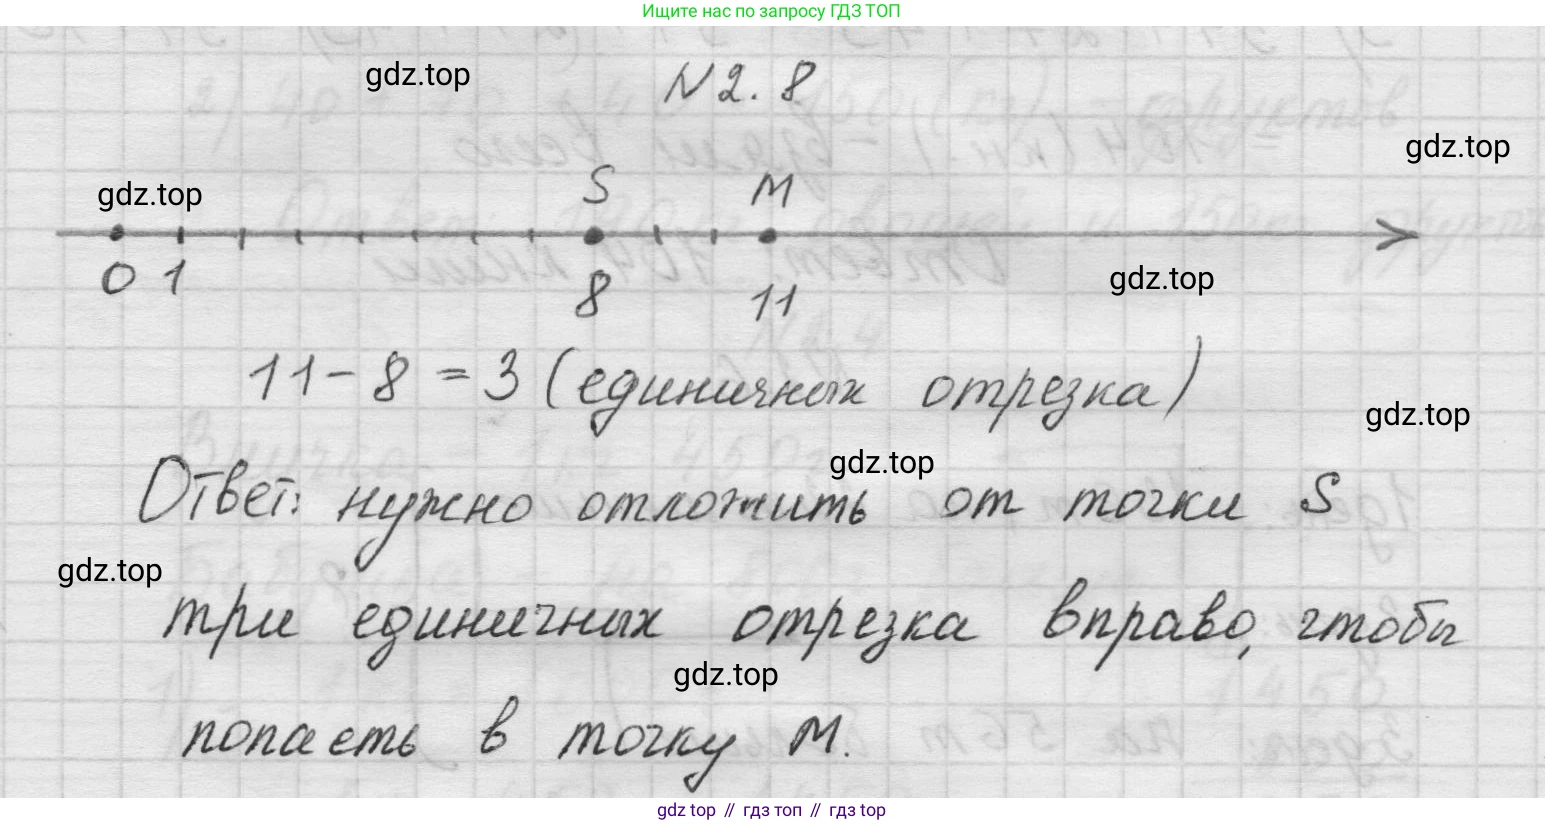 Ищите нас по запросу ГДЗ ТОП
N 2. 8
gdz.top
gdz.top
gdz.top
S M
0 1 8 11
gdz.top
11 - 8 = 3 (единичных отрезка)
gdz.top
gdz.top
Ответ: нужно отложить от точки S
gdz.top
три единичных отрезка вправо, чтобы
gdz.top
попасть в точку М.
gdz top // гдз топ // gdz top